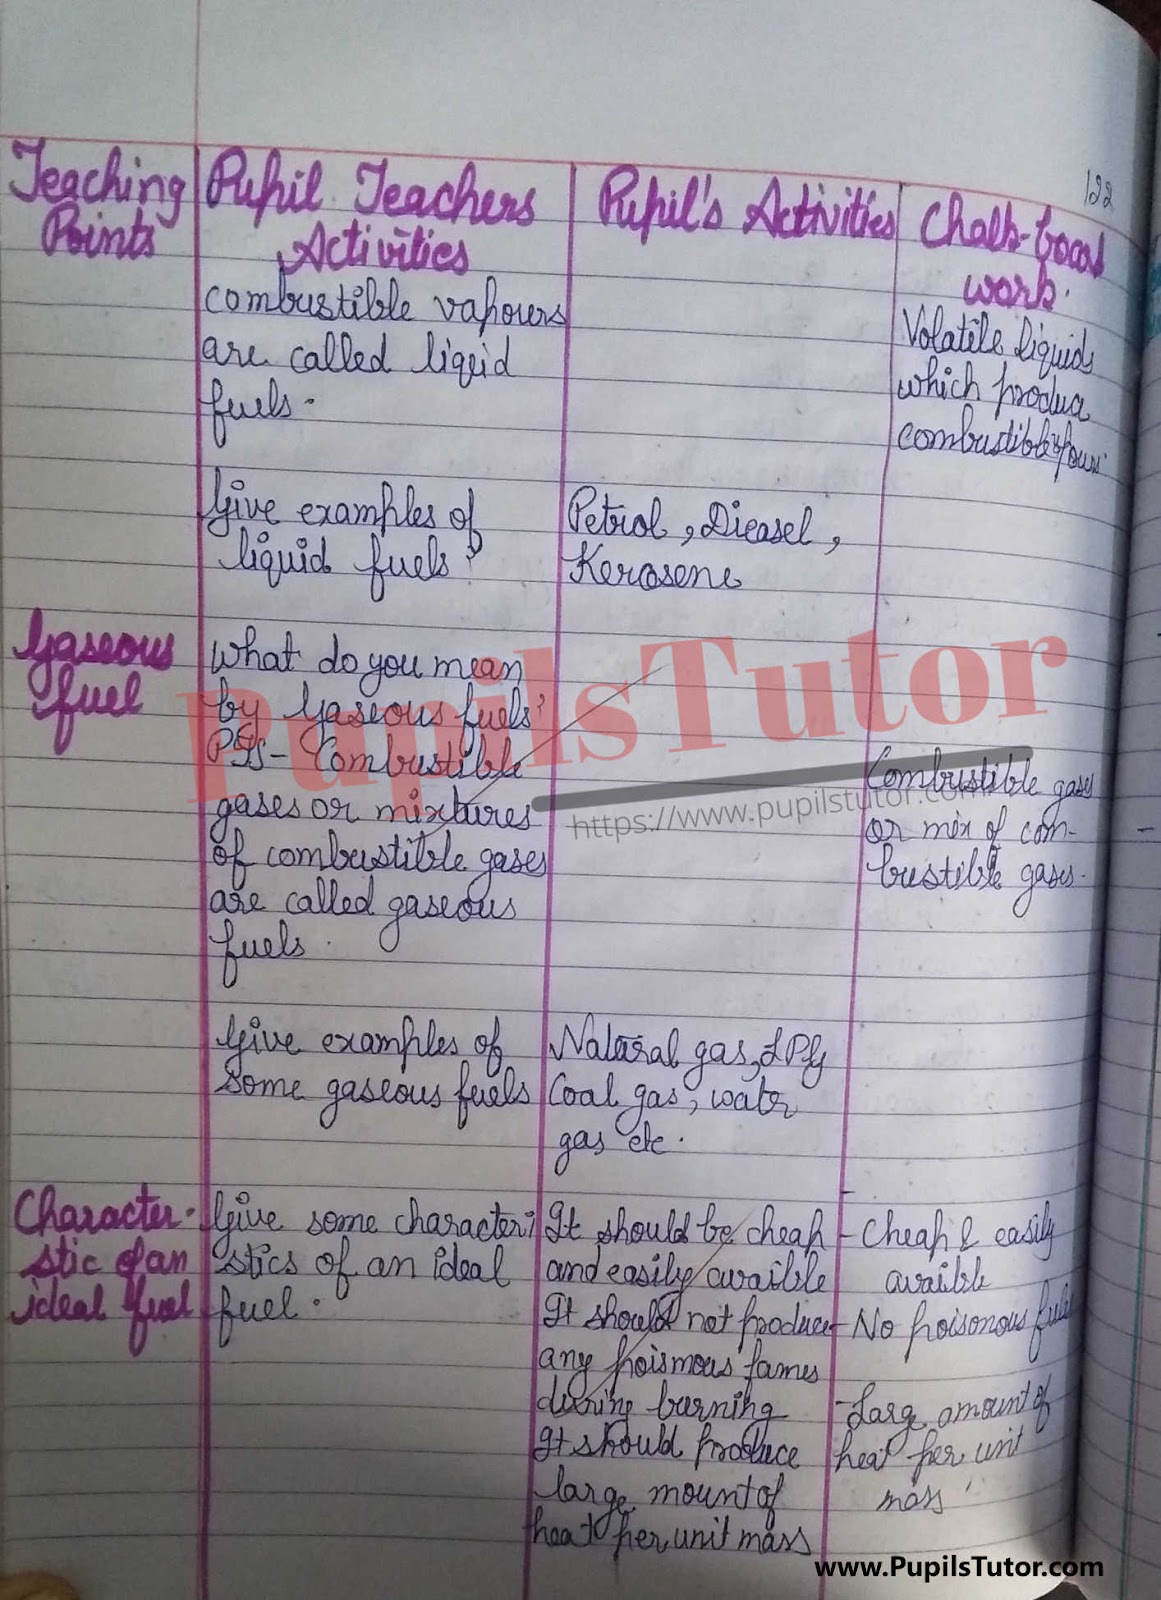 122
Teaching
Points
Pupil Teachers
Activities
Pupil's Activities
Chalk-board
work.
combustible vapours
are called liquid
fuels.
Volatile liquids
which produce
combustible
Give examples of
liquid fuels?
Petrol, Dieasel,
Kerosene
Gaseous
fuel
What do you mean
by Gaseous fuels?
PTs- Combustible
gases or mixtures
of combustible gases
are called gaseous
fuels.
Combustible gases
or mix of com-
bustible gases.
PupilsTutor
https://www.pupilstutor.com/
Give examples of
some gaseous fuels
Natural gas, LPG
Coal gas, water
gas etc.
Character-
stic of an
ideal fuel
Give some characteri
stics of an ideal
fuel.
It should be cheap
and easily avaible
It should not produce
any poismous fames
during burning
It should produce
large mount of
heat per unit mass
- Cheap & easily
avaible
- No poisonous
- Large amount of
heat per unit
mass
www.PupilsTutor.com